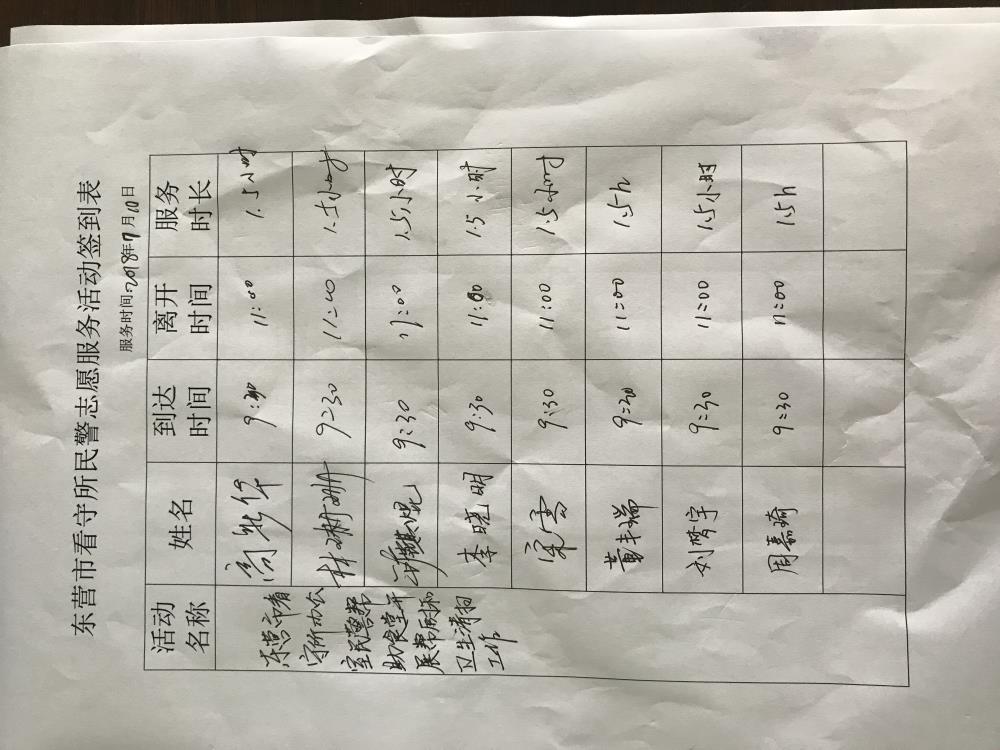 东营市看守所民警志愿服务活动签到表
服务时间:2018年7月10日
活动名称 姓名 到达时间 离开时间 服务时长
东营市看
守所办公
室民警帮
助食堂开
展帮厨和
卫生清扫
工作
9:30 11:00 1.5小时
林珊珊 9:30 11:00 1.5小时
9:30 11:00 1.5小时
李晓明 9:30 11:00 1.5小时
宋雪 9:30 11:00 1.5小时
黄丰瑞 9:30 11:00 1.5h
刘梦宇 9:30 11:00 1.5小时
周嘉琦 9:30 11:00 1.5h